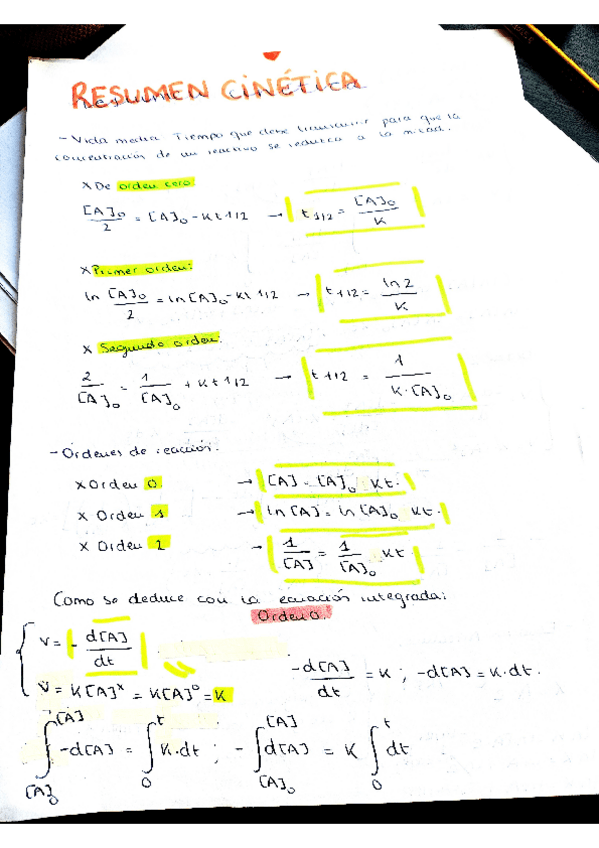 RESUMEN CINÉTICA
- Vida media Tiempo que debe transcurrir para que la
concentración de un reactivo se reduzca a la mitad.
x De orden cero
[A]₀/2 = [A]₀ - Kt1/2 → t1/2 = [A]₀/K
x Primer orden:
ln [A]₀/2 = ln[A]₀ - Kt 1/2 → t1/2 = ln2/K
x Segundo orden:
2/[A]₀ = 1/[A]₀ + Kt1/2 → t1/2 = 1/K·[A]₀
- Ordenes de reacción.
x Orden 0 → [A] = [A]₀ Kt.
x Orden 1 → ln[A] = ln[A]₀ Kt.
x Orden 2 → 1/[A] = 1/[A]₀ Kt.
Como se deduce con la ecuación integrada:
Orden 0
v = - d[A]/dt
-d[A]/dt = K ; -d[A] = K·dt.
v = K[A]ˣ = K[A]⁰ = K
∫[A]₀[A] -d[A] = ∫0t K·dt ; - ∫[A]₀[A] d[A] = K ∫0t dt